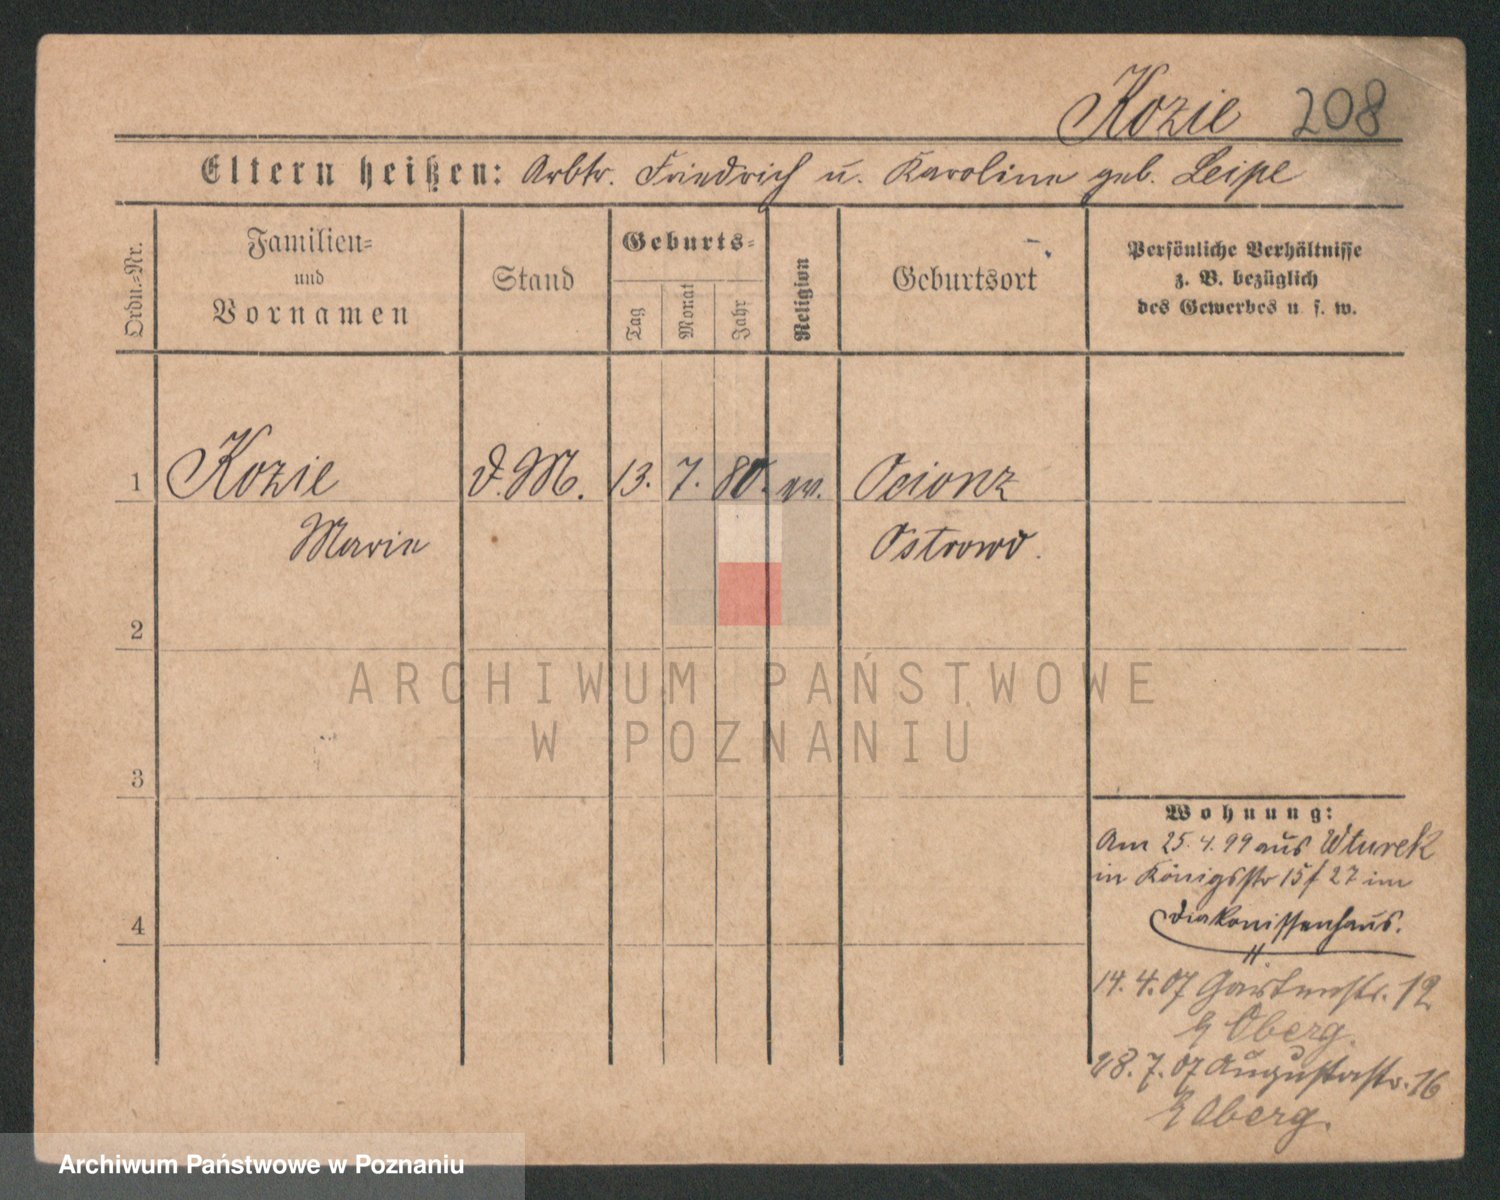 Kozie 208
Eltern heißen: Arbtr. Friedrich u. Karoline geb. Leipe
Ordn.=Nr.
Familien=
und
Vornamen
Stand
Geburts=
Tag
Monat
Jahr
Religion
Geburtsort
Persönliche Verhältnisse
z. B. bezüglich
des Gewerbes u. s. w.
1 Kozie d. M. 13. 7. 80. ev. Ocionz
Marie Ostrowo.
2
ARCHIWUM PAŃSTWOWE
W POZNANIU
3
Wohnung:
Am 25.4.99 aus Wturek
in Königsstr 15 f 27 im
Diakonissenhaus.
4
14.4.07 Gartenstr. 12
Oberg.
18.7.07 Augustastr. 16
Oberg.
Archiwum Państwowe w Poznaniu